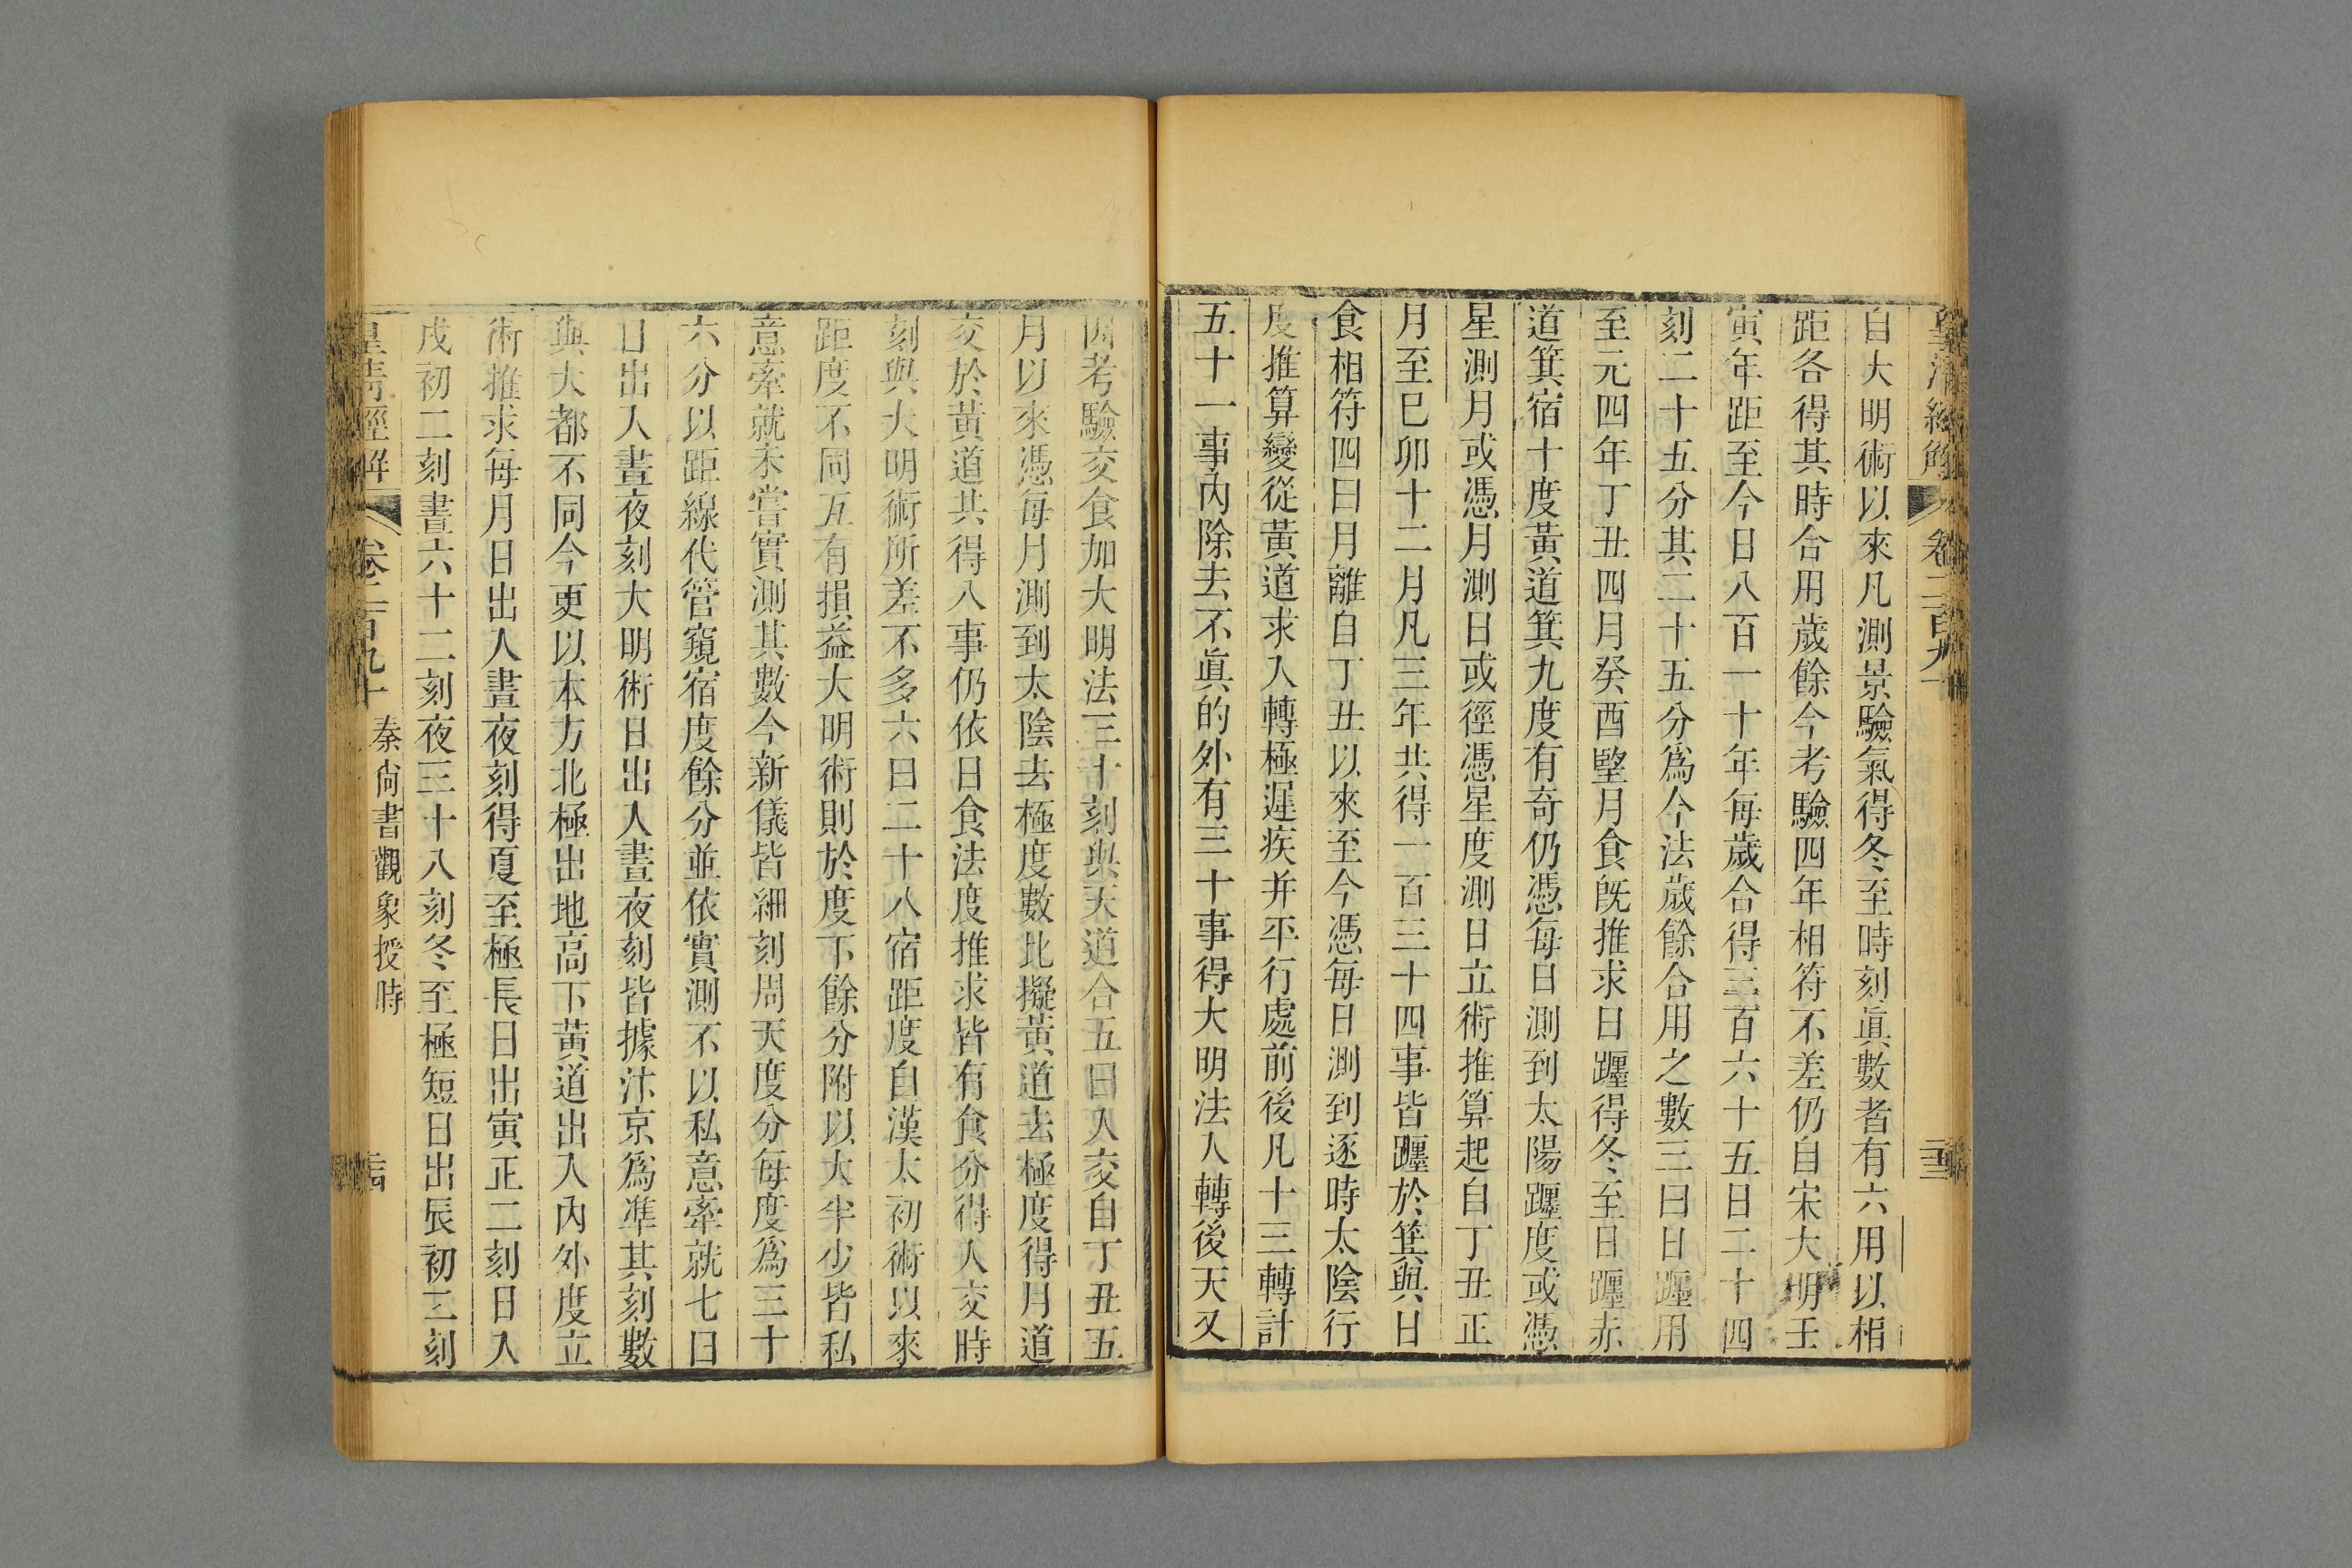 皇清經解 卷二百九十
自大明術以來凡測景驗氣得冬至時刻眞數者有六用以相
距各得其時合用歲餘今考驗四年相符不差仍自宋大明壬
寅年距至今日八百一十年每歲合得三百六十五日二十四
刻二十五分其二十五分爲今法歲餘合用之數三曰日躔用
至元四年丁丑四月癸酉朢月食旣推求日躔得冬至日躔赤
道箕宿十度黃道箕九度有奇仍憑每日測到太陽躔度或憑
星測月或憑月測日或徑憑星度測日立術推算起自丁丑正
月至已卯十二月凡三年共得一百三十四事皆躔於箕與日
食相符四曰月離自丁丑以來至今憑每日測到逐時太陰行
度推算變從黃道求入轉極遲疾并平行處前後凡十三轉計
五十一事內除去不眞的外有三十事得大明法入轉後天又
因考驗交食加大明法三十刻與天道合五曰入交自丁丑五
月以來憑每月測到太陰去極度數比擬黃道去極度得月道
交於黃道共得八事仍依日食法度推求皆有食分得入交時
刻與大明術所差不多六曰二十八宿距度自漢太初術以來
距度不同互有損益大明術則於度下餘分附以太半少皆私
意牽就未嘗實測其數今新儀皆細刻周天度分每度爲三十
六分以距線代管窺宿度餘分並依實測不以私意牽就七曰
日出入晝夜刻大明術日出入晝夜刻皆據汴京爲準其刻數
與大都不同今更以本方北極出地高下黃道出入內外度立
術推求每月日出入晝夜刻得夏至極長日出寅正二刻日入
戌初二刻晝六十二刻夜三十八刻冬至極短日出辰初二刻
皇清經解 卷二百九十 秦尙書觀象授時